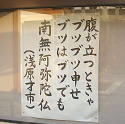 腹が立つときゃ
ブツブツ申せ
ブツはブツでも
南無阿弥陀仏
(浅原才市)